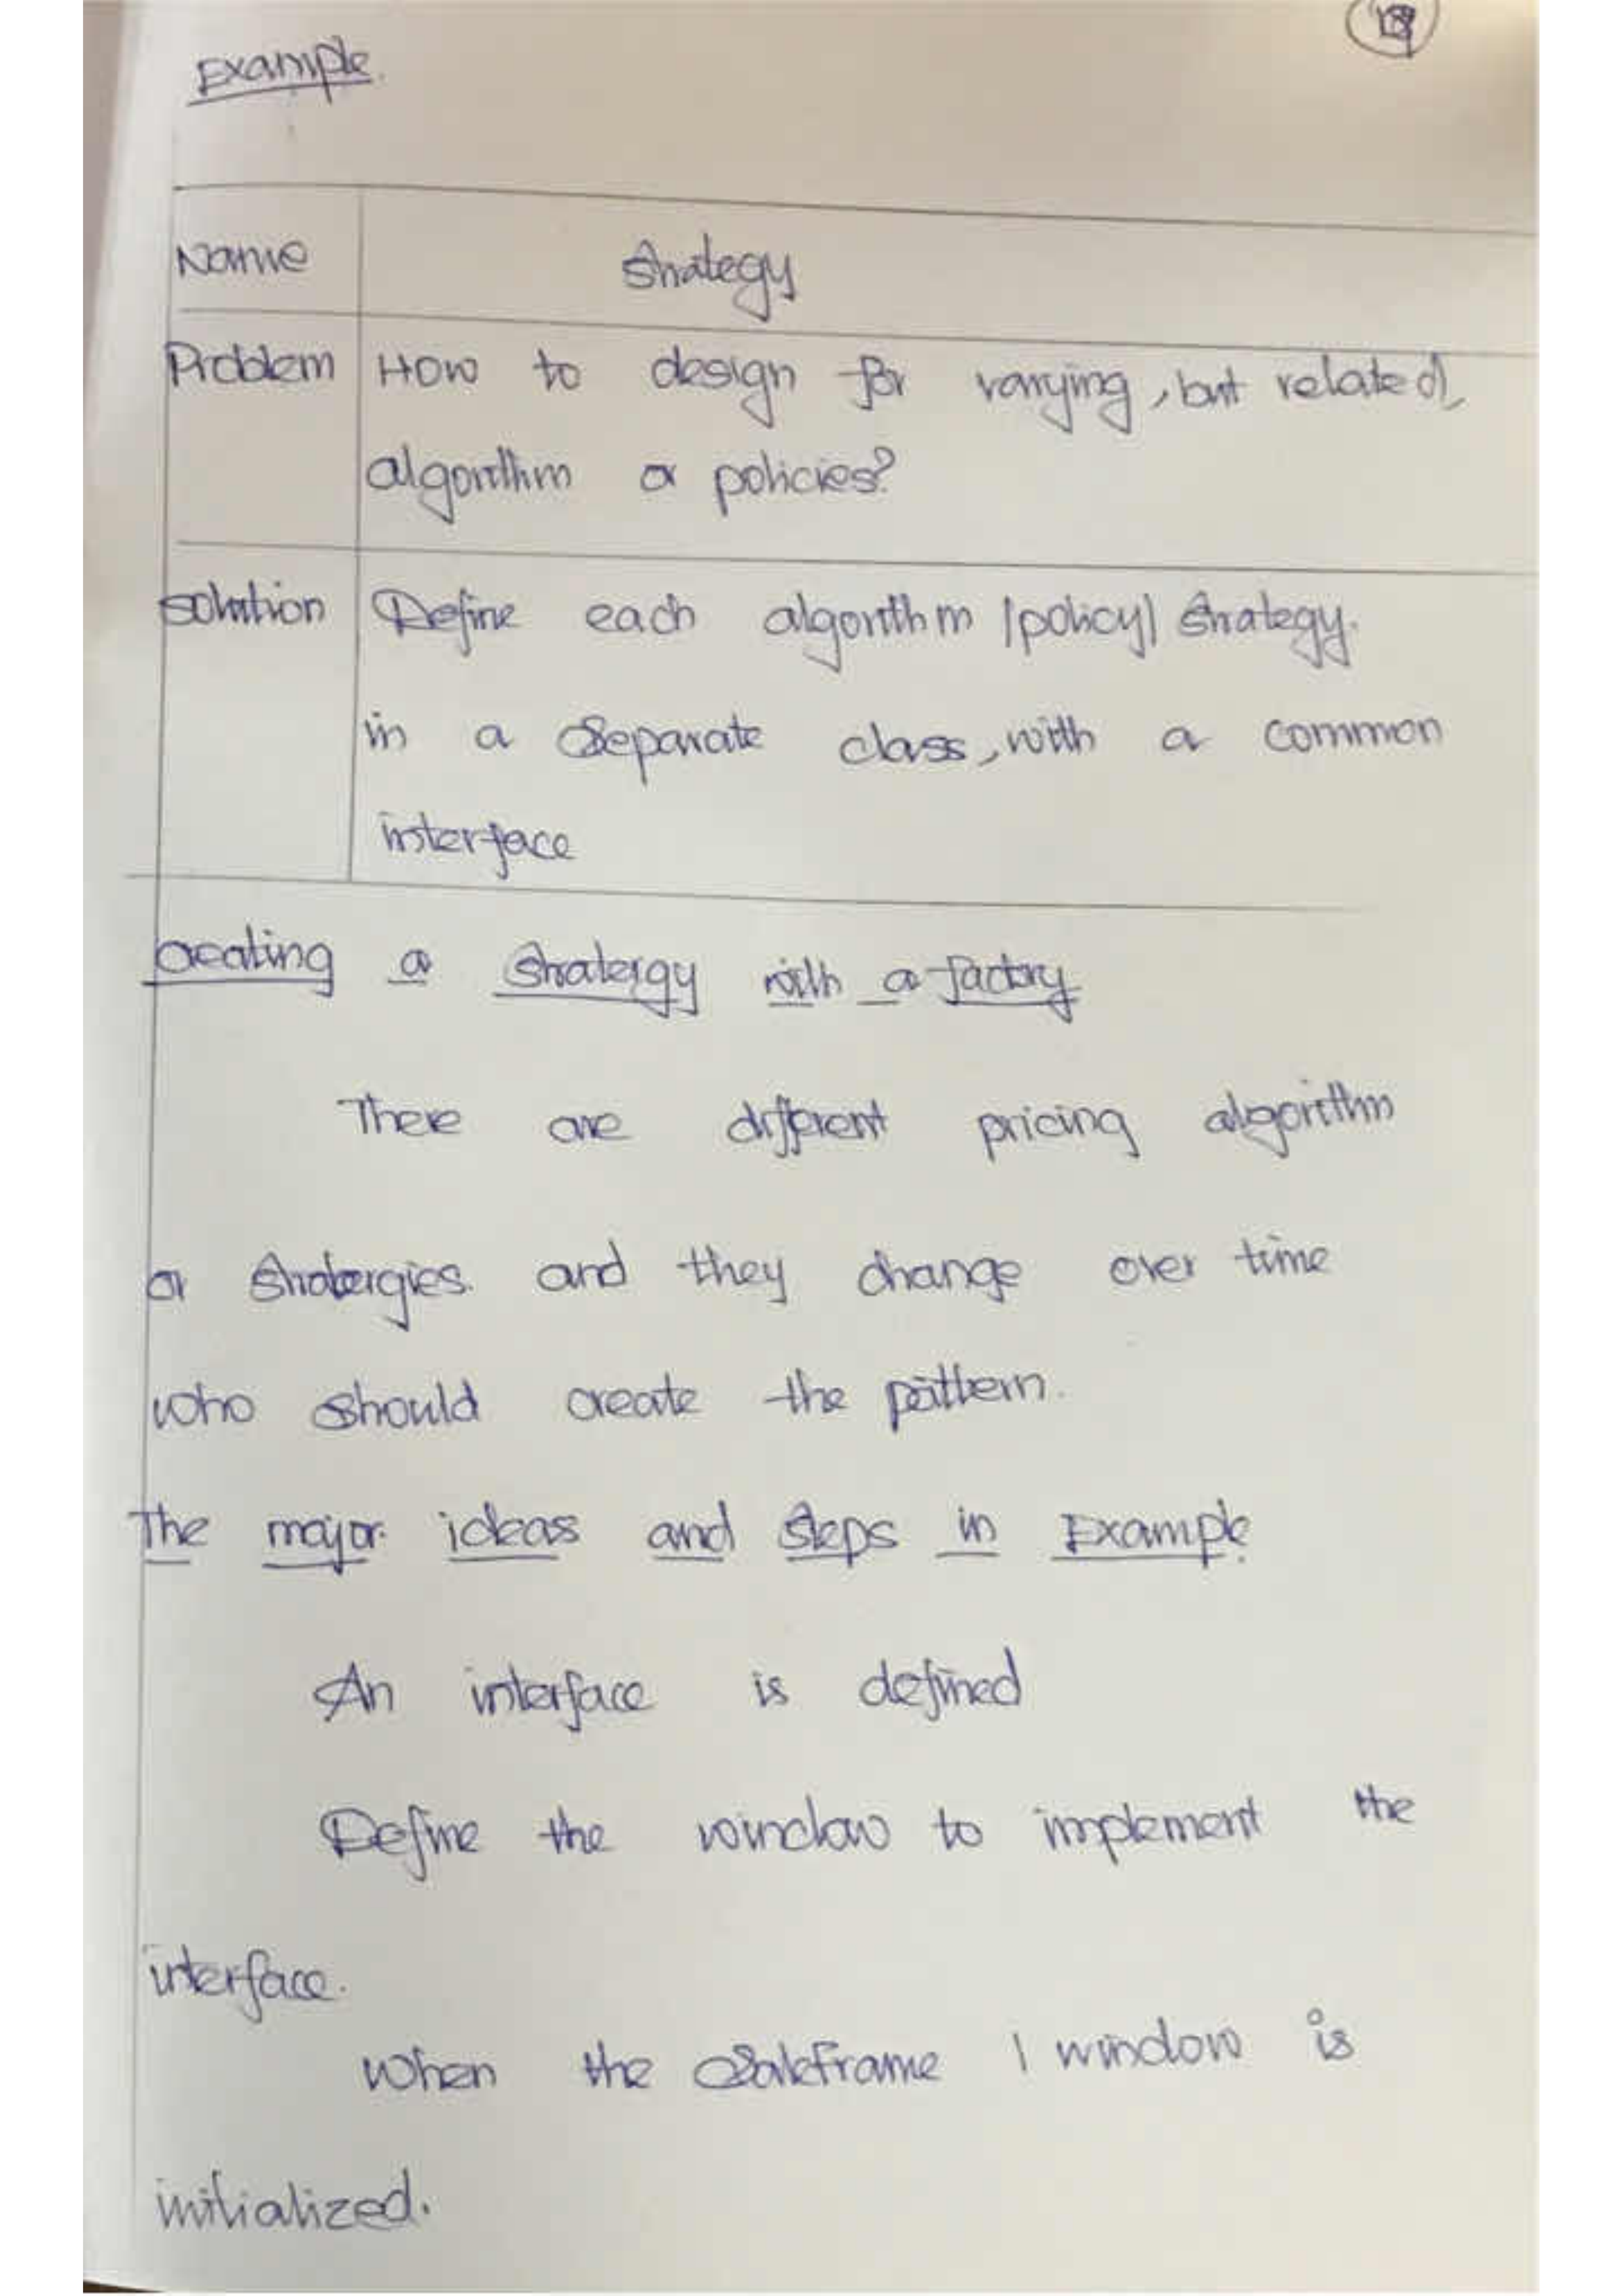 Example.
Name Strategy
Problem How to design for varying, but related,
algorithm or policies?
solution Define each algorithm |policy| strategy.
in a separate class, with a common
interface
creating a stratergy with a factory
There are different pricing algorithm
or stratergies. and they change over time
who should create the pattern.
The major ideas and steps in Example
An interface is defined
Define the window to implement the
interface.
When the SaleFrame | window is
initialized.